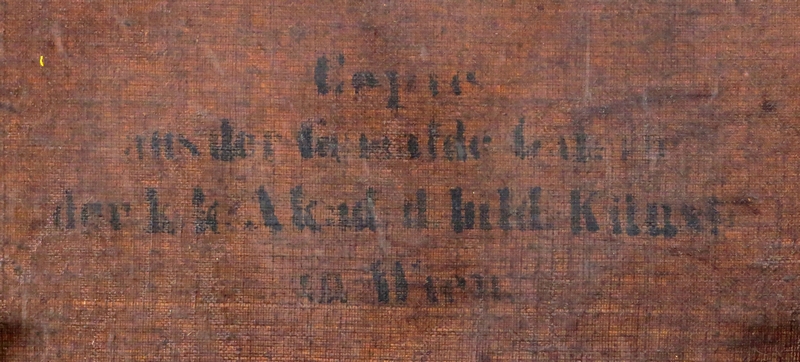 Copie
aus der Gemälde Galerie
der k. k. Akad. d. bild. Künste
in Wien